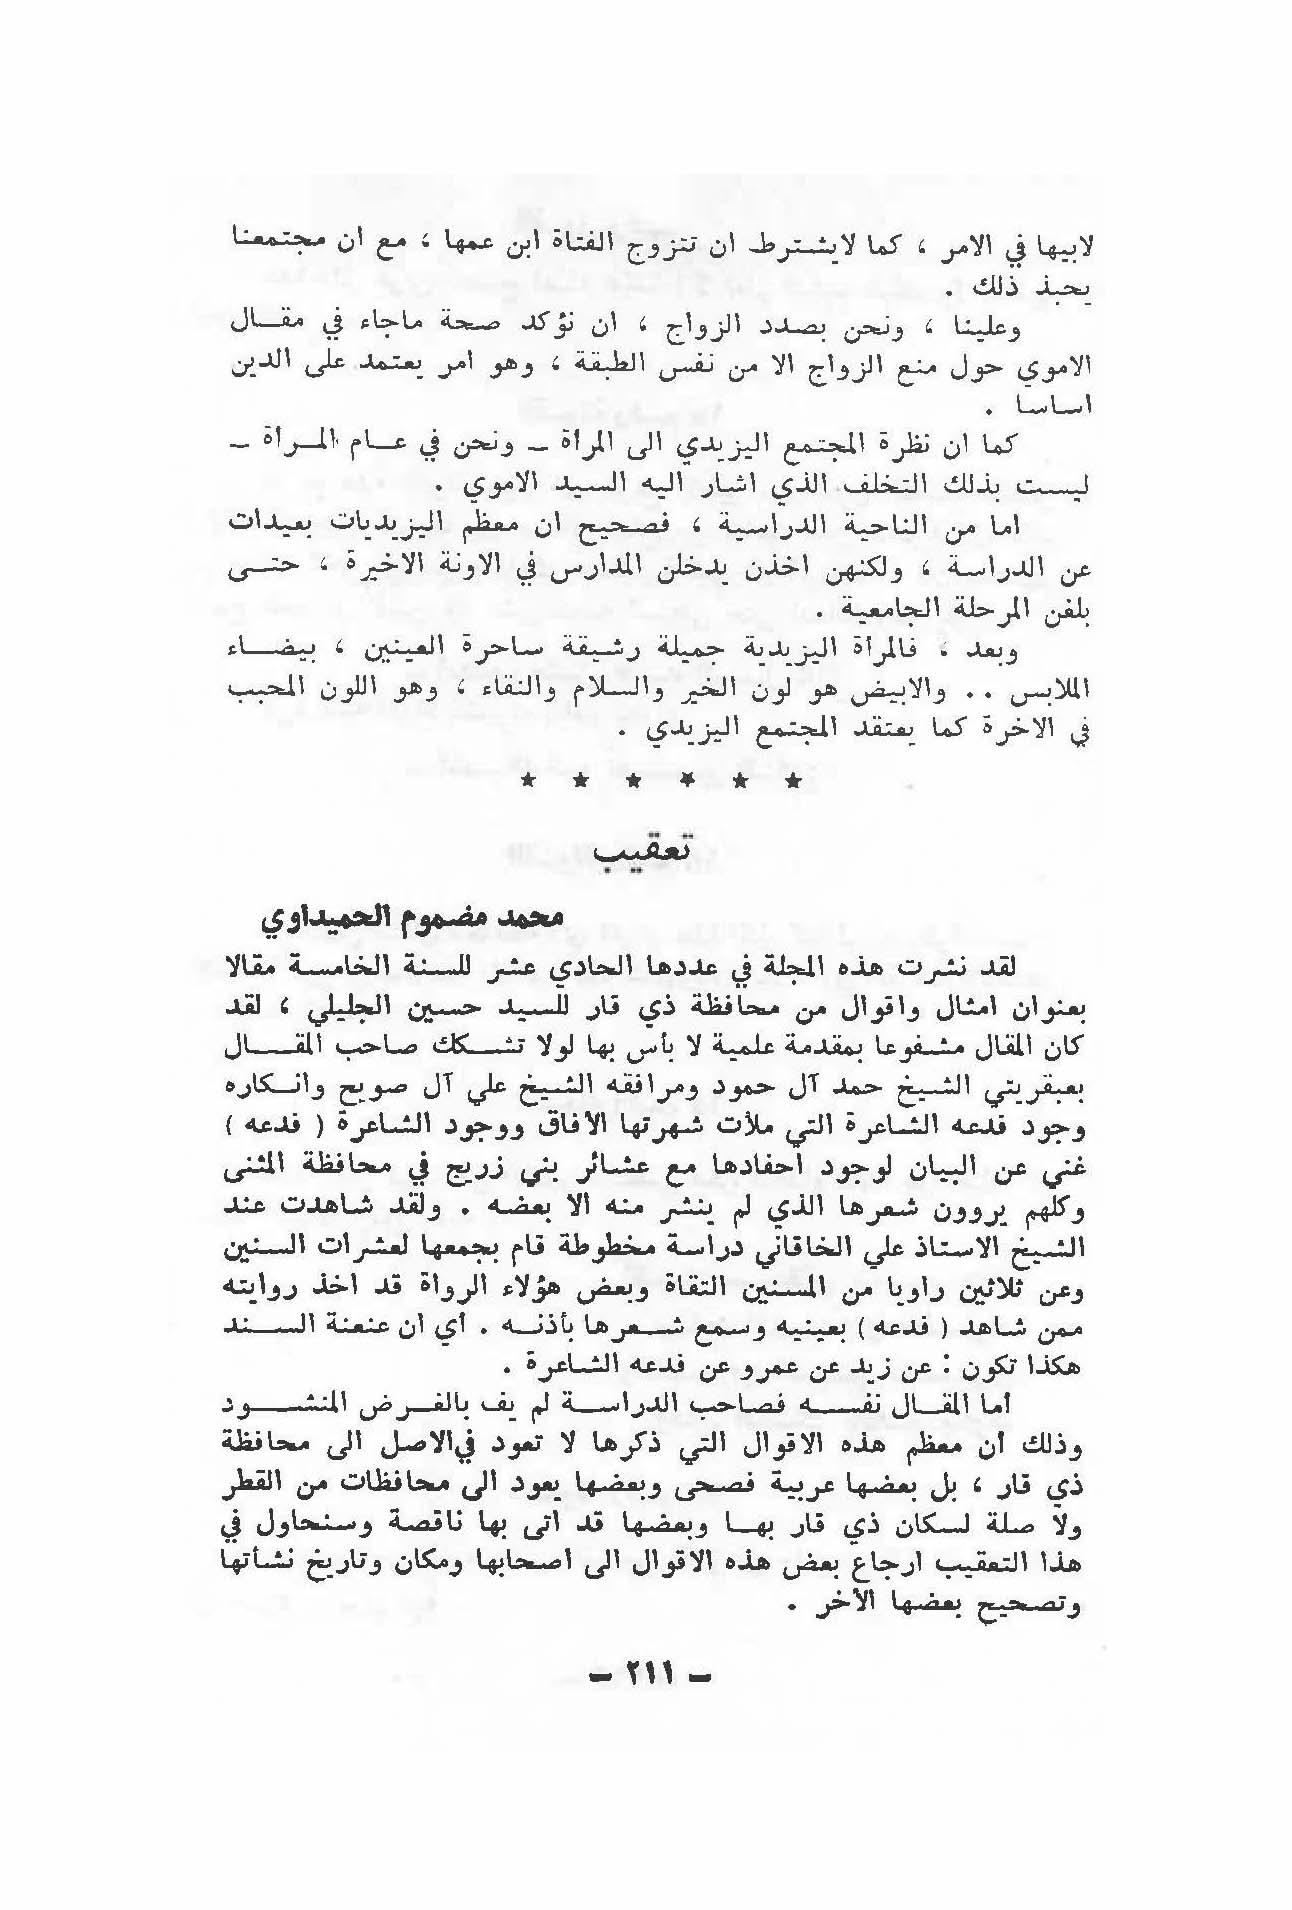 لابيها في الامر ، كما لايشترط ان تتزوج الفتاة ابن عمها ، مع ان مجتمعنا
يحبذ ذلك .
وعلينا ، ونحن بصدد الزواج ، ان نؤكد صحة ماجاء في مقال
الاموي حول منع الزواج الا من نفس الطبقة ، وهو امر يعتمد على الدين
اساسا .
كما ان نظرة المجتمع اليزيدي الى المرأة – ونحن في عام المرأة –
ليست بذلك التخلف الذي اشار اليه السيد الاموي .
اما من الناحية الدراسية ، فصحيح ان معظم اليزيديات بعيدات
عن الدراسة ، ولكنهن اخذن يدخلن المدارس في الاونة الاخيرة ، حتى
بلغن المرحلة الجامعية .
وبعد ، فالمرأة اليزيدية جميلة رشيقة ساحرة العينين ، بيضاء
الملابس .. والابيض هو لون الخير والسلام والنقاء ، وهو اللون المحبب
في الاخرة كما يعتقد المجتمع اليزيدي .
★ ★ ★ ★ ★ ★
تعقيب
محمد مضموم الحميداوي
لقد نشرت هذه المجلة في عددها الحادي عشر للسنة الخامسة مقالا
بعنوان امثال واقوال من محافظة ذي قار للسيد حسين الجليلي ، لقد
كان المقال مشفوعا بمقدمة علمية لا بأس بها لولا تشكك صاحب المقال
بعبقريتي الشيخ حمد آل حمود ومرافقه الشيخ علي آل صويح وانكاره
وجود فدعه الشاعرة التي ملأت شهرتها الآفاق ووجود الشاعرة ( فدعه )
غني عن البيان لوجود احفادها مع عشائر بني زريج في محافظة المثنى
وكلهم يروون شعرها الذي لم ينشر منه الا بعضه . ولقد شاهدت عند
الشيخ الاستاذ علي الخاقاني دراسة مخطوطة قام بجمعها لعشرات السنين
وعن ثلاثين راويا من المسنين التقاة وبعض هؤلاء الرواة قد اخذ روايته
ممن شاهد ( فدعه ) بعينيه وسمع شعرها بأذنه . أي ان عنعنة السند
هكذا تكون : عن زيد عن عمرو عن فدعه الشاعرة .
أما المقال نفسه فصاحب الدراسة لم يف بالغرض المنشود
وذلك أن معظم هذه الاقوال التي ذكرها لا تعود في الاصل الى محافظة
ذي قار ، بل بعضها عربية فصحى وبعضها يعود الى محافظات من القطر
ولا صلة لسكان ذي قار بها وبعضها قد اتى بها ناقصة وسنحاول في
هذا التعقيب ارجاع بعض هذه الاقوال الى اصحابها ومكان وتاريخ نشأتها
وتصحيح بعضها الآخر .
– ٢١١ –